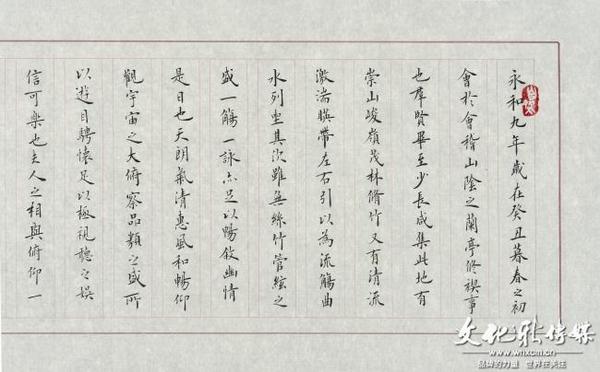 永和九年歲在癸丑暮春之初
會於會稽山陰之蘭亭修禊事
也羣賢畢至少長咸集此地有
崇山峻嶺茂林脩竹又有清流
激湍暎帶左右引以為流觴曲
水列坐其次雖無絲竹管絃之
盛一觴一詠亦足以暢敘幽情
是日也天朗氣清惠風和暢仰
觀宇宙之大俯察品類之盛所
以遊目騁懷足以極視聽之娛
信可樂也夫人之相與俯仰一
文化新传媒
www.whxcm.cn
品牌的力量 世界在关注